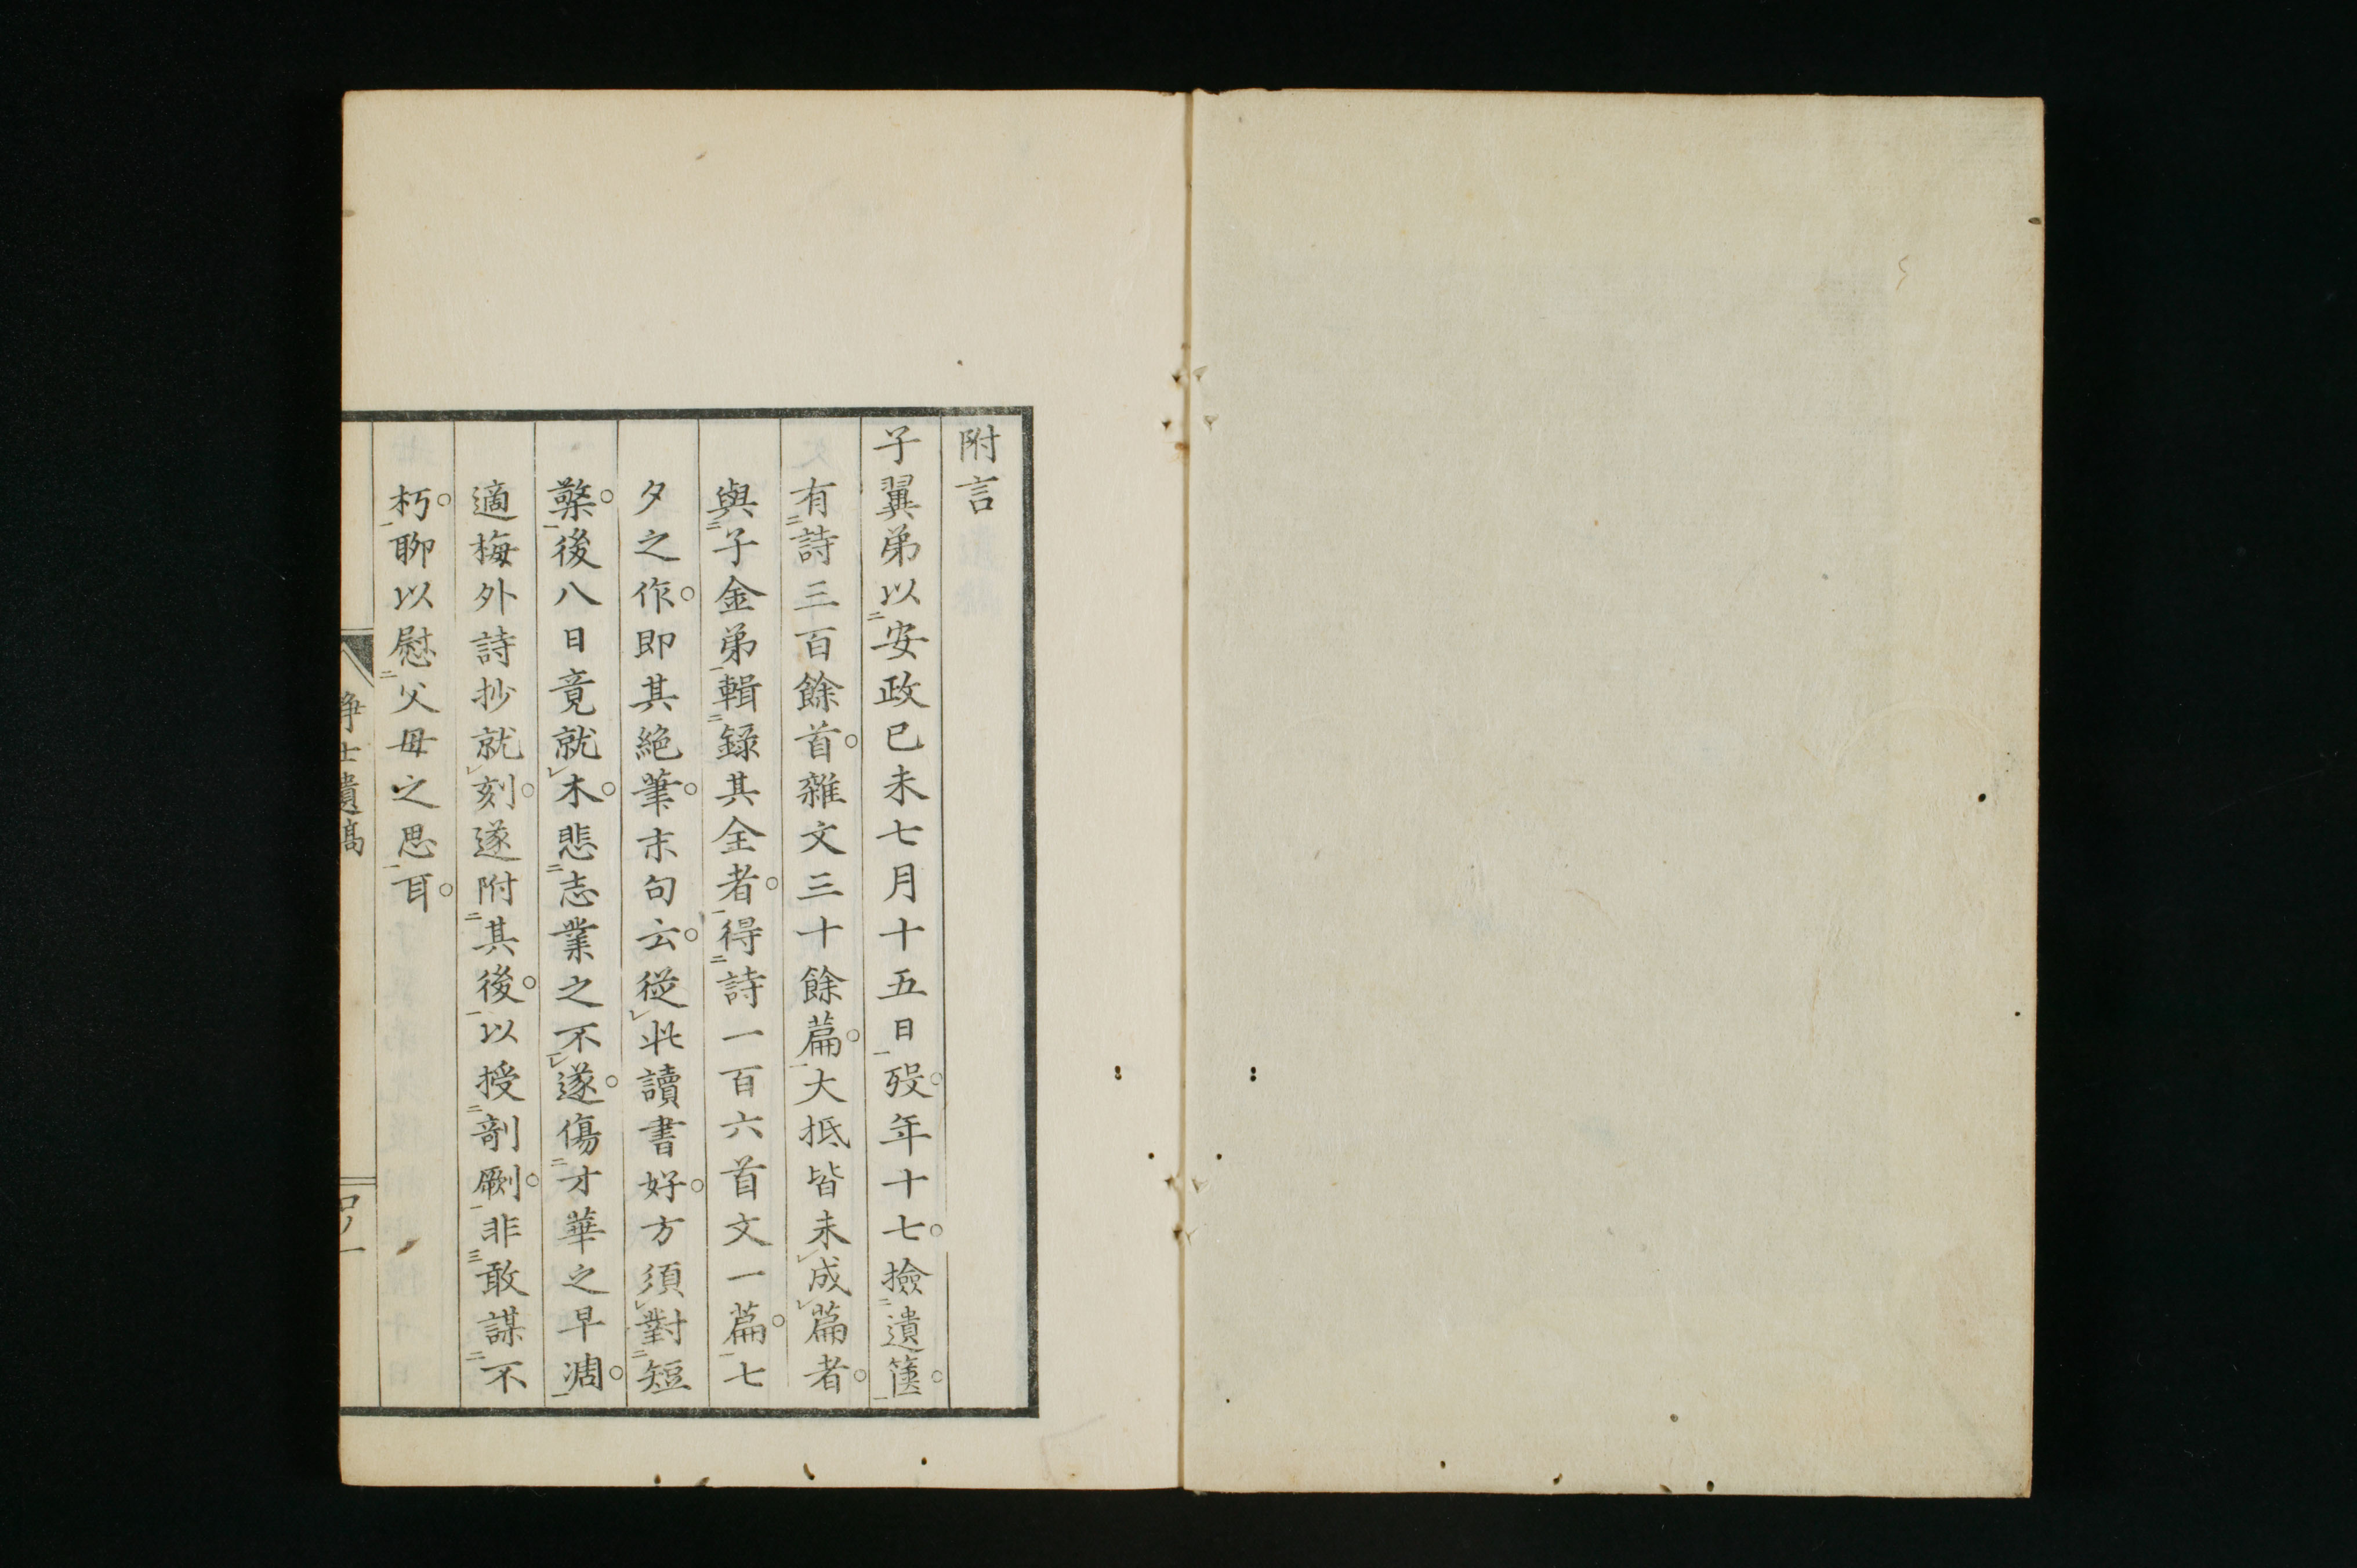 附言
子翼弟以安政己未七月十五日歿年十七撿遺篋
有詩三百餘首雜文三十餘篇大抵皆未成篇者
與子金弟輯錄其全者得詩一百六首文一篇七
夕之作即其絕筆末句云從此讀書好方須對短
檠後八日竟就木悲志業之不遂傷才華之早凋
適梅外詩抄就刻遂附其後以授剞劂非敢謀不
朽聊以慰父母之思耳